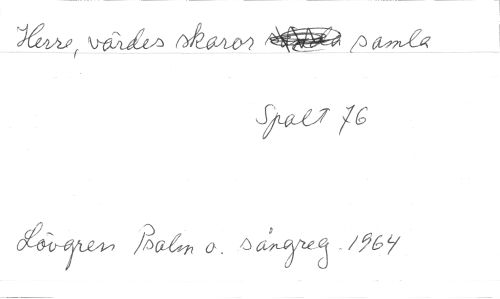 Herre, värdes skaror samla
Spalt 76
Lövgren Psalm o. sångreg. 1964